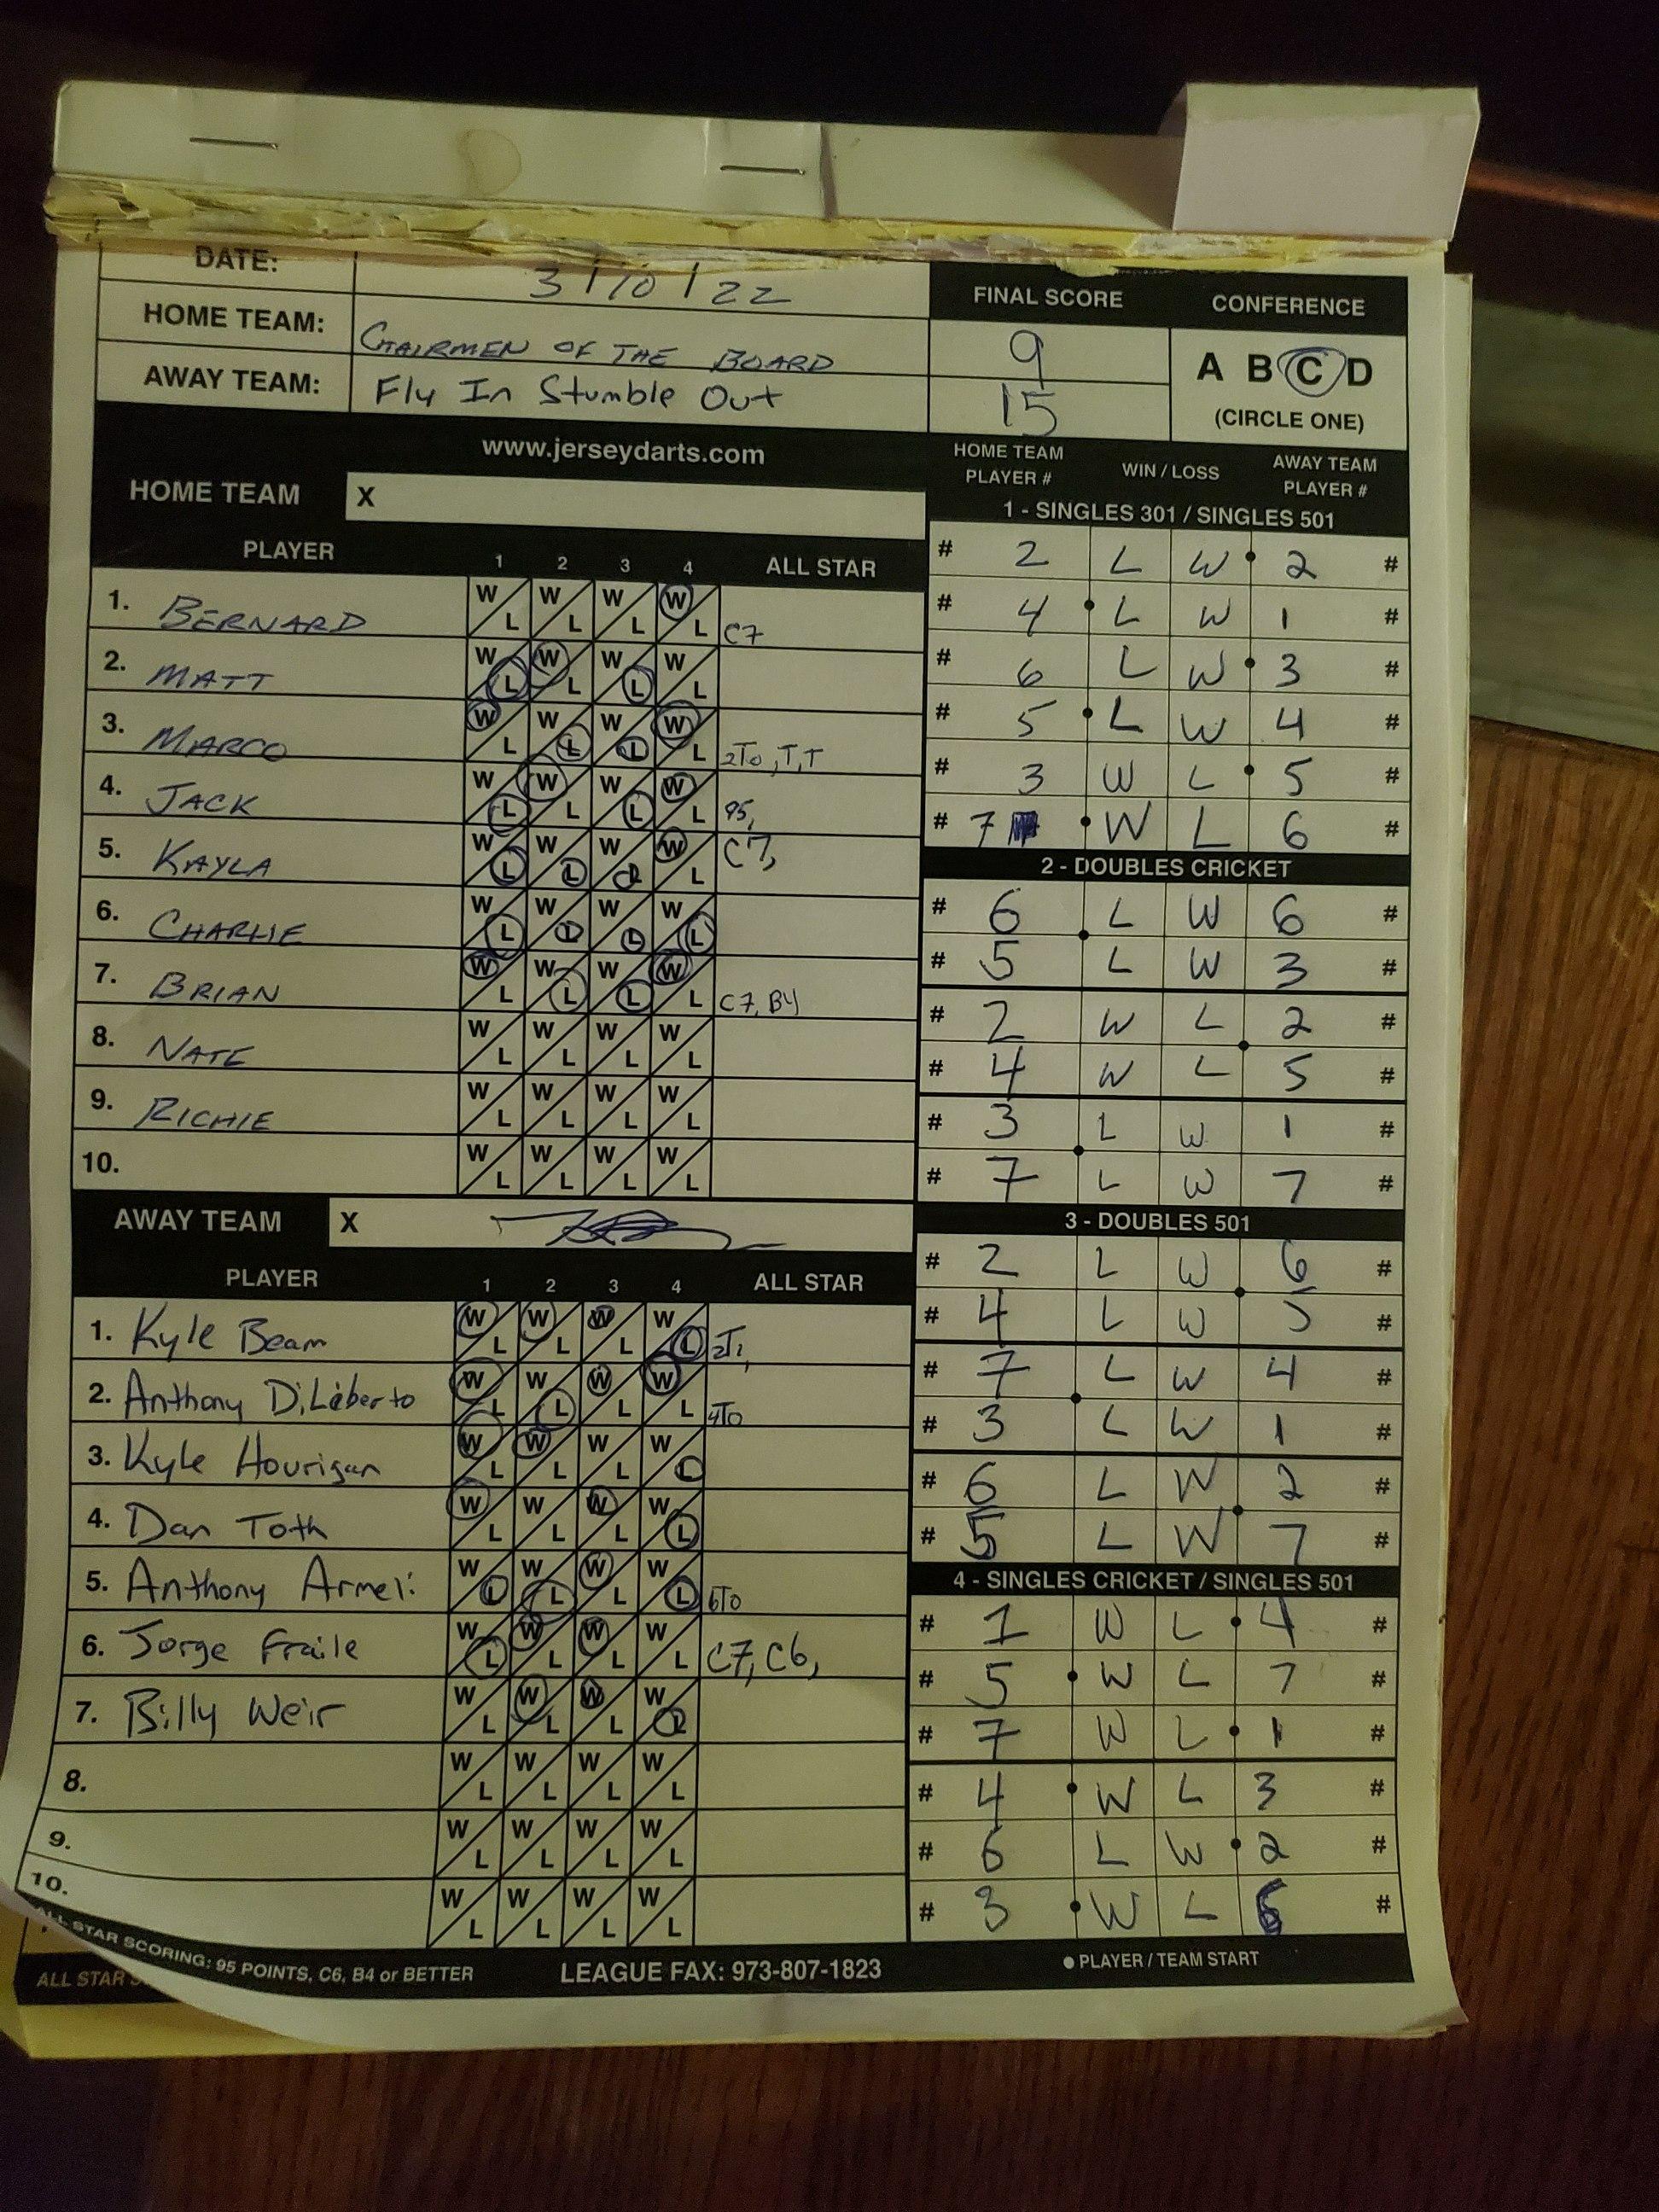 DATE: 3/10/22
HOME TEAM: CHAIRMEN OF THE BOARD
AWAY TEAM: Fly In Stumble Out
FINAL SCORE
9
15
CONFERENCE
A B C D
(CIRCLE ONE)
www.jerseydarts.com
HOME TEAM X
PLAYER 1 2 3 4 ALL STAR
1. BERNARD W L W L W L W L C7
2. MATT W L W L W L W L
3. MARCO W L W L W L W L 2T0, T, T
4. JACK W L W L W L W L 95,
5. KAYLA W L W L W L W L C7,
6. CHARLIE W L W L W L W L
7. BRIAN W L W L W L W L C7, B4
8. NATE W L W L W L W L
9. RICHIE W L W L W L W L
10. W L W L W L W L
AWAY TEAM X
PLAYER 1 2 3 4 ALL STAR
1. Kyle Beam W L W L W L W L 2T1,
2. Anthony DiLiberto W L W L W L W L 4T0
3. Kyle Hourigan W L W L W L W L
4. Dan Toth W L W L W L W L
5. Anthony Armeli W L W L W L W L 6T0
6. Jorge Fraile W L W L W L W L C7, C6,
7. Billy Weir W L W L W L W L
8. W L W L W L W L
9. W L W L W L W L
10. W L W L W L W L
ALL STAR SCORING: 95 POINTS, C6, B4 or BETTER
LEAGUE FAX: 973-807-1823
ALL STAR
HOME TEAM PLAYER # WIN / LOSS AWAY TEAM PLAYER #
1 - SINGLES 301 / SINGLES 501
# 2 L W 2 #
# 4 L W 1 #
# 6 L W 3 #
# 5 L W 4 #
# 3 W L 5 #
# 7 W L 6 #
2 - DOUBLES CRICKET
# 6 L W 6 #
# 5 L W 3 #
# 2 W L 2 #
# 4 W L 5 #
# 3 L W 1 #
# 7 L W 7 #
3 - DOUBLES 501
# 2 L W 6 #
# 4 L W 5 #
# 7 L W 4 #
# 3 L W 1 #
# 6 L W 2 #
# 5 L W 7 #
4 - SINGLES CRICKET / SINGLES 501
# 1 W L 4 #
# 5 W L 7 #
# 7 W L 1 #
# 4 W L 3 #
# 6 L W 2 #
# 3 W L #
● PLAYER / TEAM START